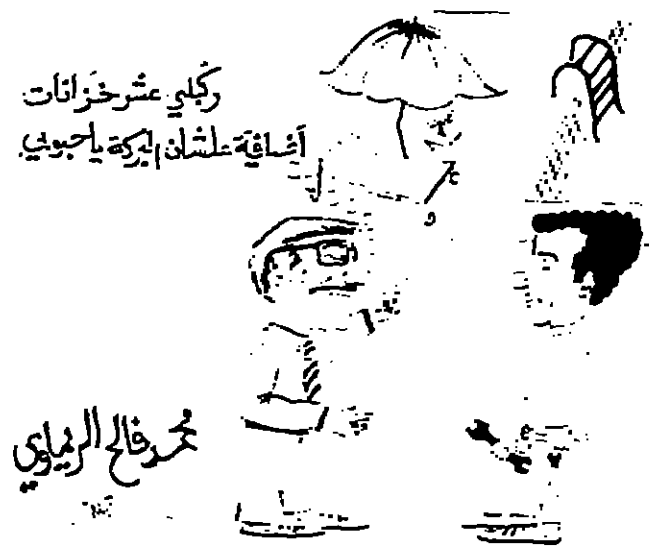 ركبلي عشر خزانات
إضافية علشان البركة يا حبوب
محمد فالح الريماوي